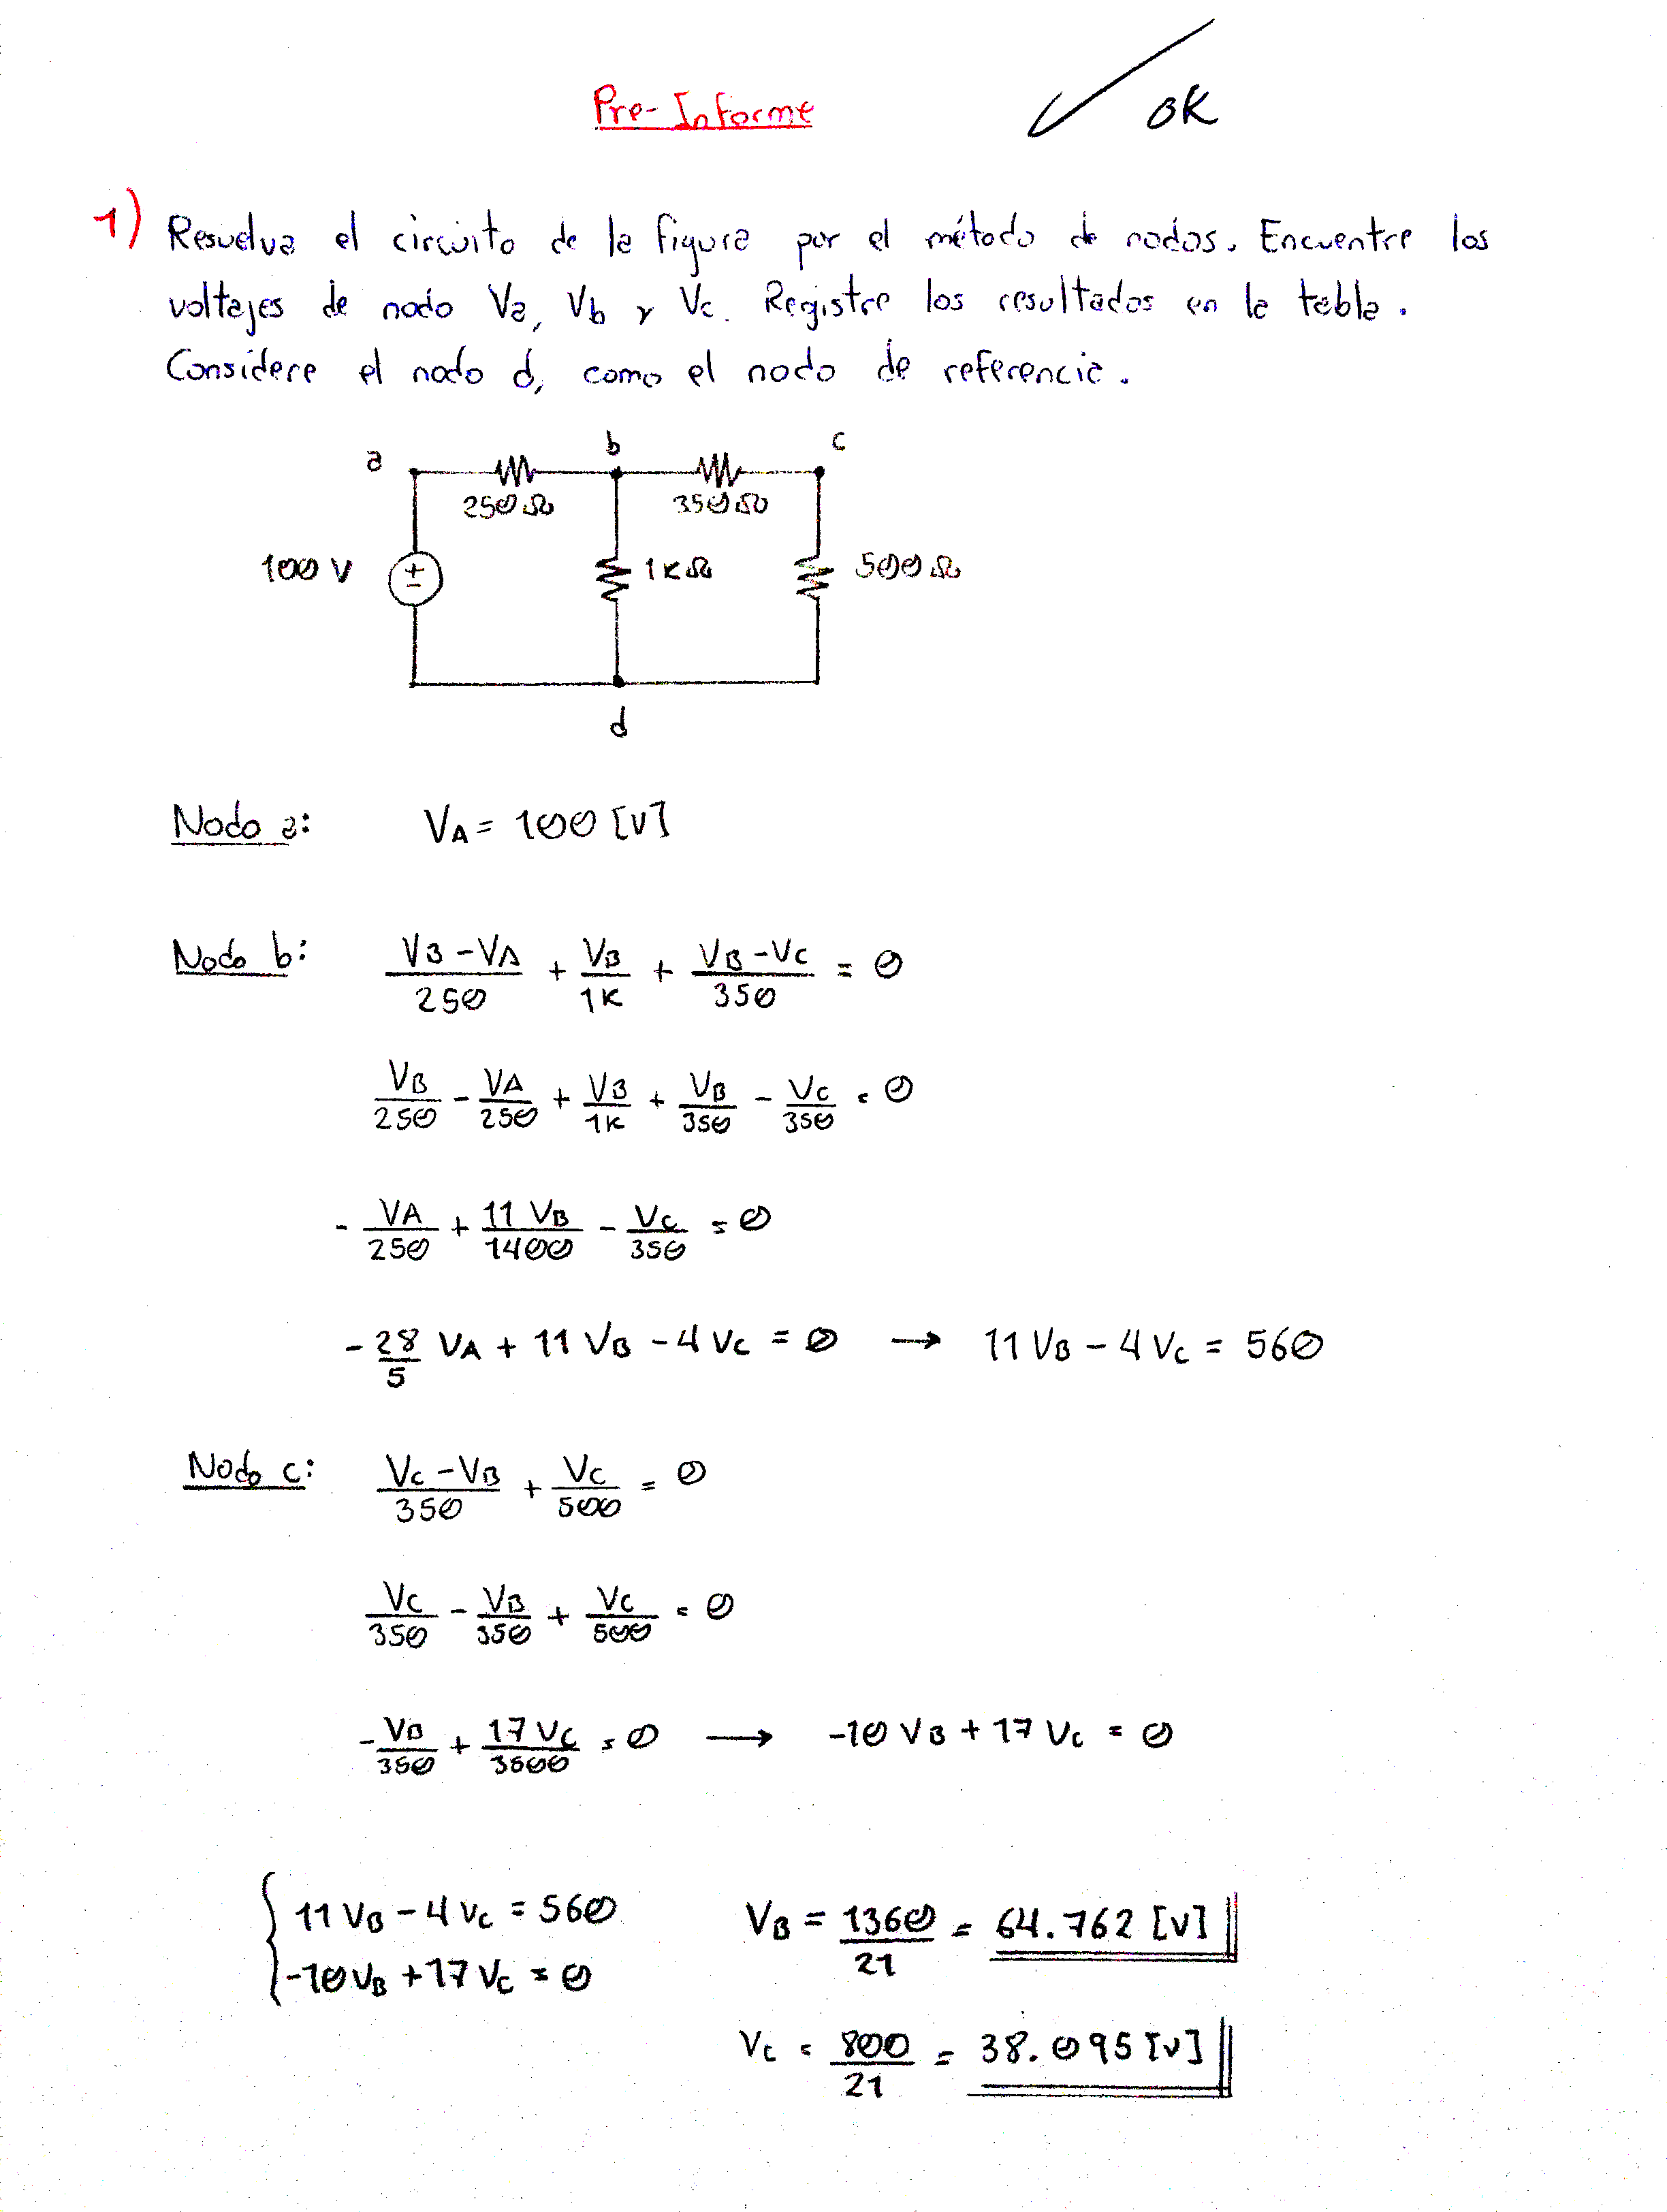 Pre-Informe
OK
1) Resuelva el circuito de la figura por el método de nodos. Encuentre los
voltajes de nodo Va, Vb y Vc. Registre los resultados en la tabla.
Considere el nodo d, como el nodo de referencia.
a b c
250Ω 350Ω
100 V + - 1KΩ 500Ω
d
Nodo a: VA = 100 [V]
Nodo b: (VB - VA)/250 + VB/1K + (VB - VC)/350 = 0
VB/250 - VA/250 + VB/1K + VB/350 - VC/350 = 0
- VA/250 + 11 VB/1400 - VC/350 = 0
- 28/5 VA + 11 VB - 4 VC = 0 → 11 VB - 4 VC = 560
Nodo c: (VC - VB)/350 + VC/500 = 0
VC/350 - VB/350 + VC/500 = 0
- VB/350 + 17 VC/3500 = 0 → -10 VB + 17 VC = 0
11 VB - 4 VC = 560 VB = 1360/21 = 64.762 [V]
-10 VB + 17 VC = 0
VC = 800/21 = 38.095 [V]